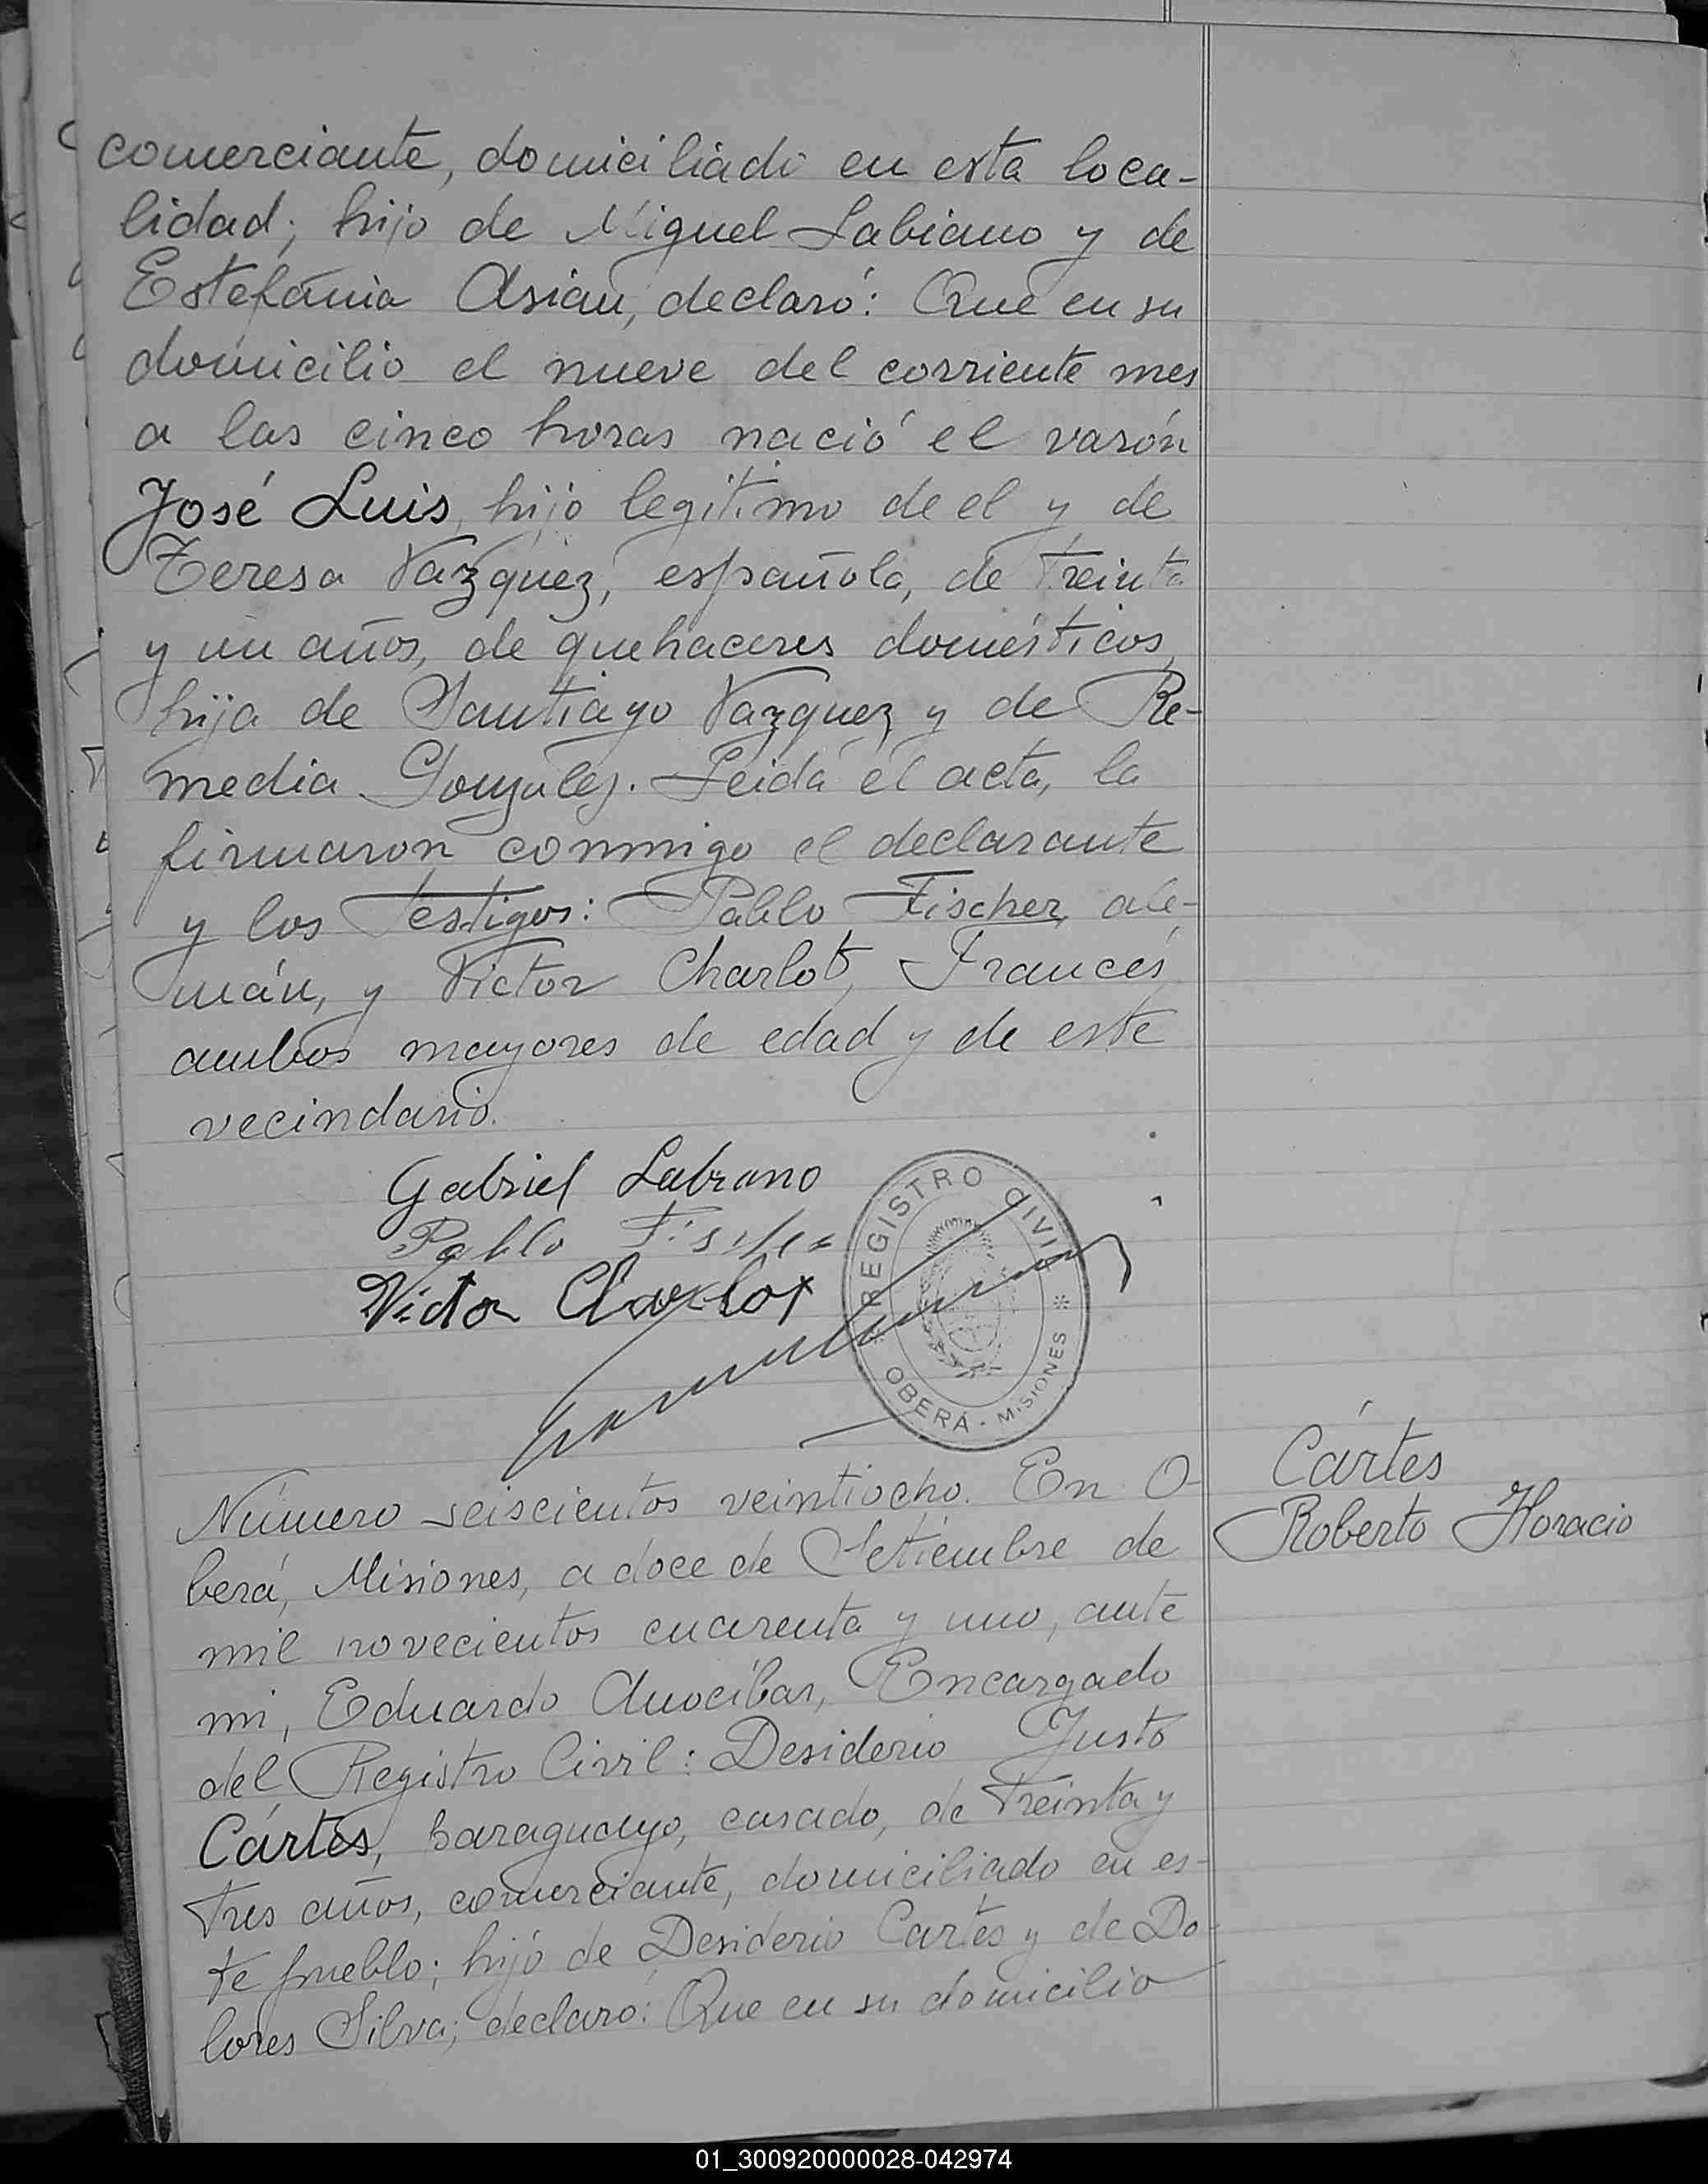 comerciante, domiciliado en esta loca-
lidad; hijo de Miguel Labiano y de
Estefania Asiau, declaró: Que en su
domicilio el nueve del corriente mes
a las cinco horas nació el varón
José Luis, hijo legitimo de el y de
Teresa Vazquez, española, de treinta
y un años, de quehaceres domésticos,
hija de Santiago Vazquez y de Re-
media Gonzalez. Leida el acta, la
firmaron conmigo el declarante
y los testigos: Pablo Fischer, ale-
mán, y Victor Charlot, Francés,
ambos mayores de edad y de este
vecindario.
Gabriel Labiano
Pablo Fischer
Victor Charlot
REGISTRO CIVIL
* OBERÁ - MISIONES *
Número seiscientos veintiocho. En O-
berá, Misiones, a doce de Setiembre de
mil novecientos cuarenta y uno, ante
mi, Eduardo Anocibar, Encargado
del Registro Civil: Desiderio Justo
Cártes, paraguayo, casado, de treinta y
tres años, comerciante, domiciliado en es-
te pueblo; hijo de Desiderio Cartes y de Do-
lores Silva; declaró: Que en su domicilio
Cártes
Roberto Horacio
01_300920000028-042974